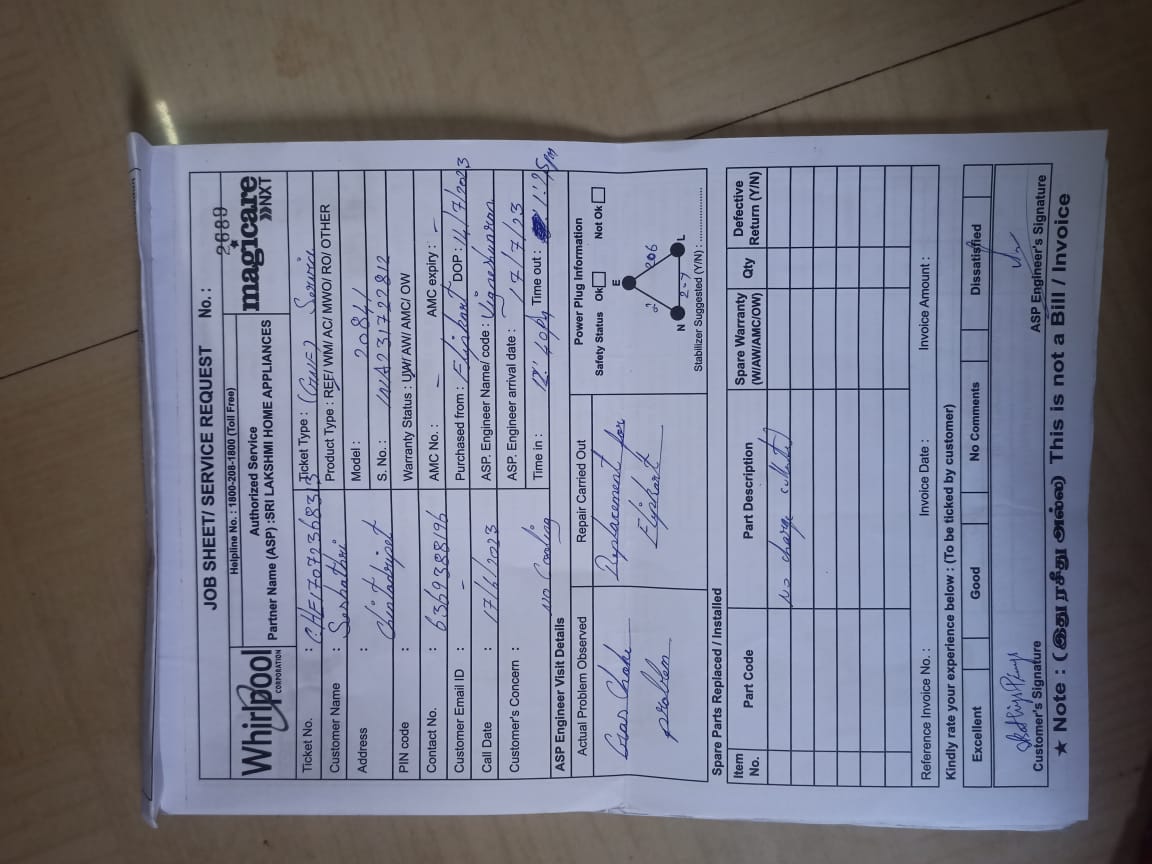 JOB SHEET/ SERVICE REQUEST No. : 2689
Helpline No. : 1800-208-1800 (Toll Free)
Whirlpool
CORPORATION
Authorized Service
Partner Name (ASP) :SRI LAKSHMI HOME APPLIANCES
magicare
NXT
Ticket No. : Ticket Type : Service
Customer Name : Seshathri Product Type : REF/ WM/ AC/ MWO/ RO/ OTHER
Address : Chintadripet Model : 20841
S. No. : INA231722812
PIN code : Warranty Status : UW/ AW/ AMC/ OW
Contact No. : 6369388196 AMC No. : – AMC expiry : –
Customer Email ID : – Purchased from : Flipkart DOP : 4/7/2023
Call Date : 17/6/2023 ASP. Engineer Name/ code : Vigneshwaran
Customer's Concern : No Cooling ASP. Engineer arrival date : 17/7/23
Time in : 12:40 Pm Time out : 1:25pm
ASP Engineer Visit Details
Actual Problem Observed Repair Carried Out Power Plug Information
Gas Choke problem
Replacement for Flipkart
Safety Status Ok Not Ok
E
2 206
N 207 L
Stabilizer Suggested (Y/N) :
Spare Parts Replaced / Installed
Item No. Part Code Part Description Spare Warranty (W/AW/AMC/OW) Qty Defective Return (Y/N)
No charge
Reference Invoice No. : Invoice Date : Invoice Amount :
Kindly rate your experience below : (To be ticked by customer)
Excellent Good No Comments Dissatisfied
Customer's Signature ASP Engineer's Signature
★ Note : (இது ரசீது அல்ல) This is not a Bill / Invoice